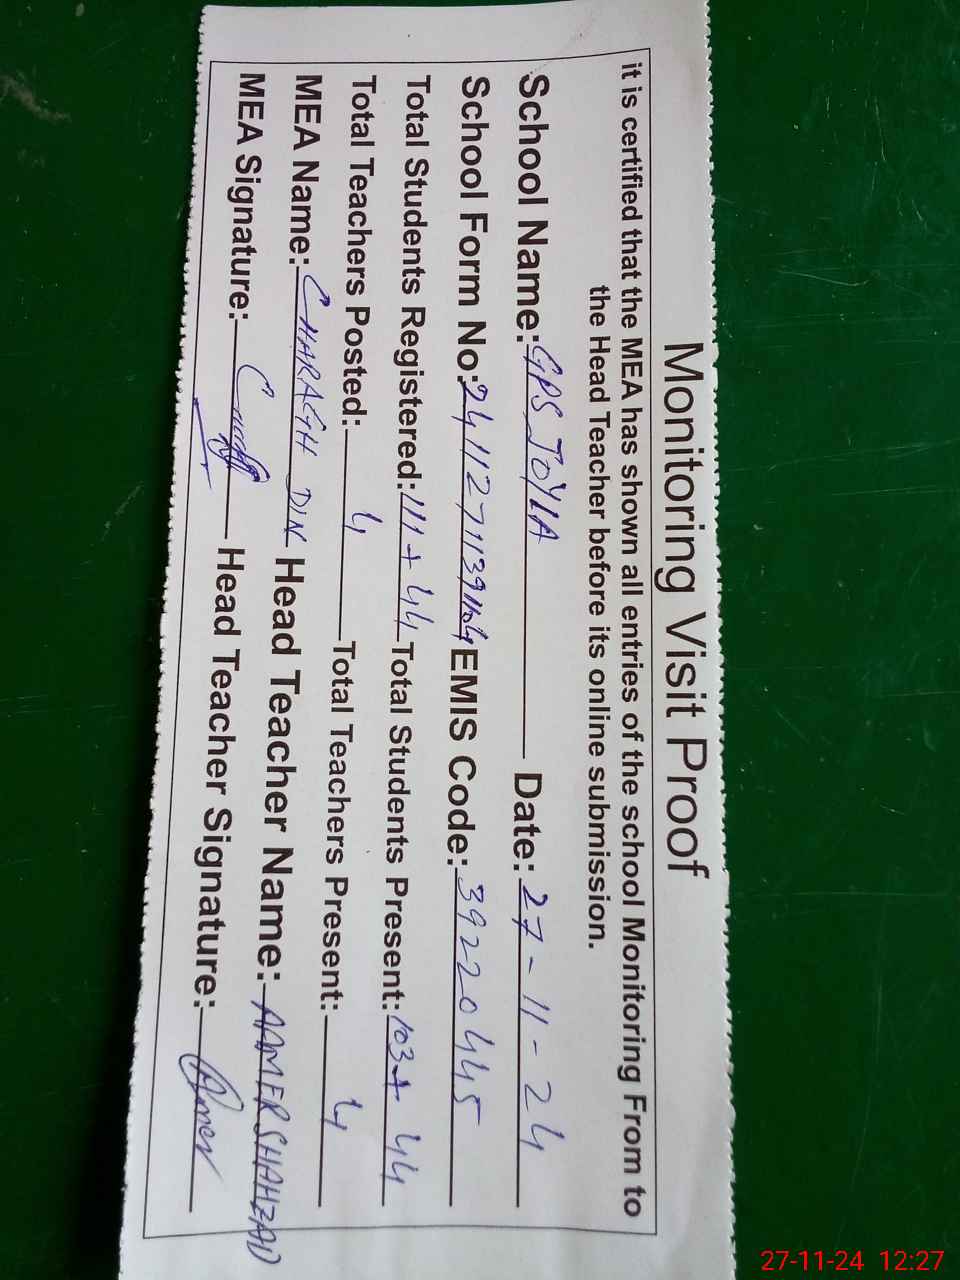 Monitoring Visit Proof
it is certified that the MEA has shown all entries of the school Monitoring From to
the Head Teacher before its online submission.
School Name: GPS JOYIA Date: 27-11-24
School Form No: EMIS Code: 39220445
Total Students Registered: 111+44 Total Students Present: 103+44
Total Teachers Posted: 4 Total Teachers Present: 4
MEA Name: CHARAGH DIN Head Teacher Name: AAMER SHAHZAD
MEA Signature: Head Teacher Signature: Aamer
27-11-24 12:27